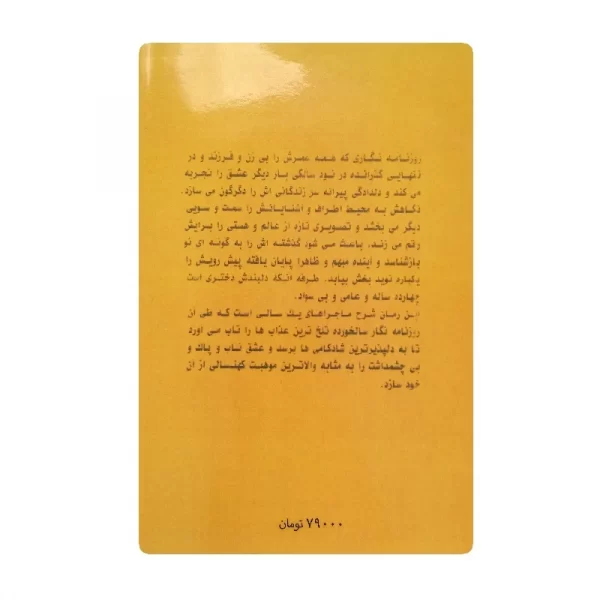 روزنامه نگاری که همه عمرش را بی زن و فرزند و در
تنهایی گذرانده در نود سالگی بار دیگر عشق را تجربه
می کند و دلدادگی پیرانه سر زندگانی اش را دگرگون می سازد.
نگاهش به محیط اطراف و آشنایانش را سمت و سویی
دیگر می بخشد و تصویری تازه از عالم و هستی را برایش
رقم می زند. باعث می شود گذشته اش را به گونه ای نو
بازشناسد و آینده مبهم و ظاهرا پایان یافته پیش رویش را
یکباره نوید بخش بیابد. طرفه آنکه دلبندش دختری است
چهارده ساله و عامی و بی سواد.
این رمان شرح ماجراهای یک سالی است که طی آن
روزنامه نگار سالخورده تلخ ترین عذاب ها را تاب می آورد
تا به دلپذیرترین شادکامی ها برسد و عشق ناب و پاک و
بی چشمداشت را به مثابه والاترین موهبت کهنسالی از آن
خود سازد.
۷۹۰۰۰ تومان